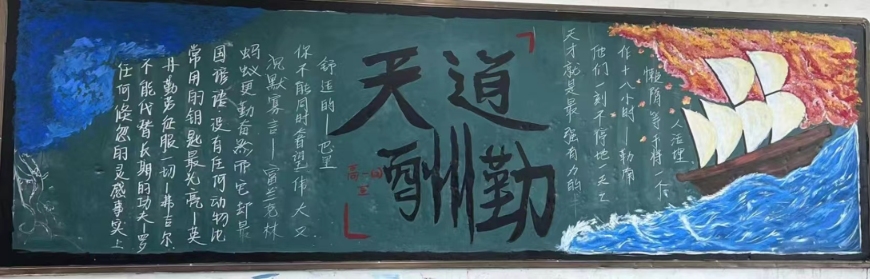 任何倏忽的灵感事实上
不能代替长期的功夫—罗
丹 勤劳征服一切—弗吉尔
常用的钥匙最光亮—英
国谚语 没有任何动物比
蚂蚁更勤奋然而它却最
沉默寡言—富兰克林
你不能同时看望伟大又
舒适的—巴里
天道
酬勤
天才就是最强有力的
他们一刻不停地一天工
作十八小时—勒南
懒惰等于将一个
人活埋